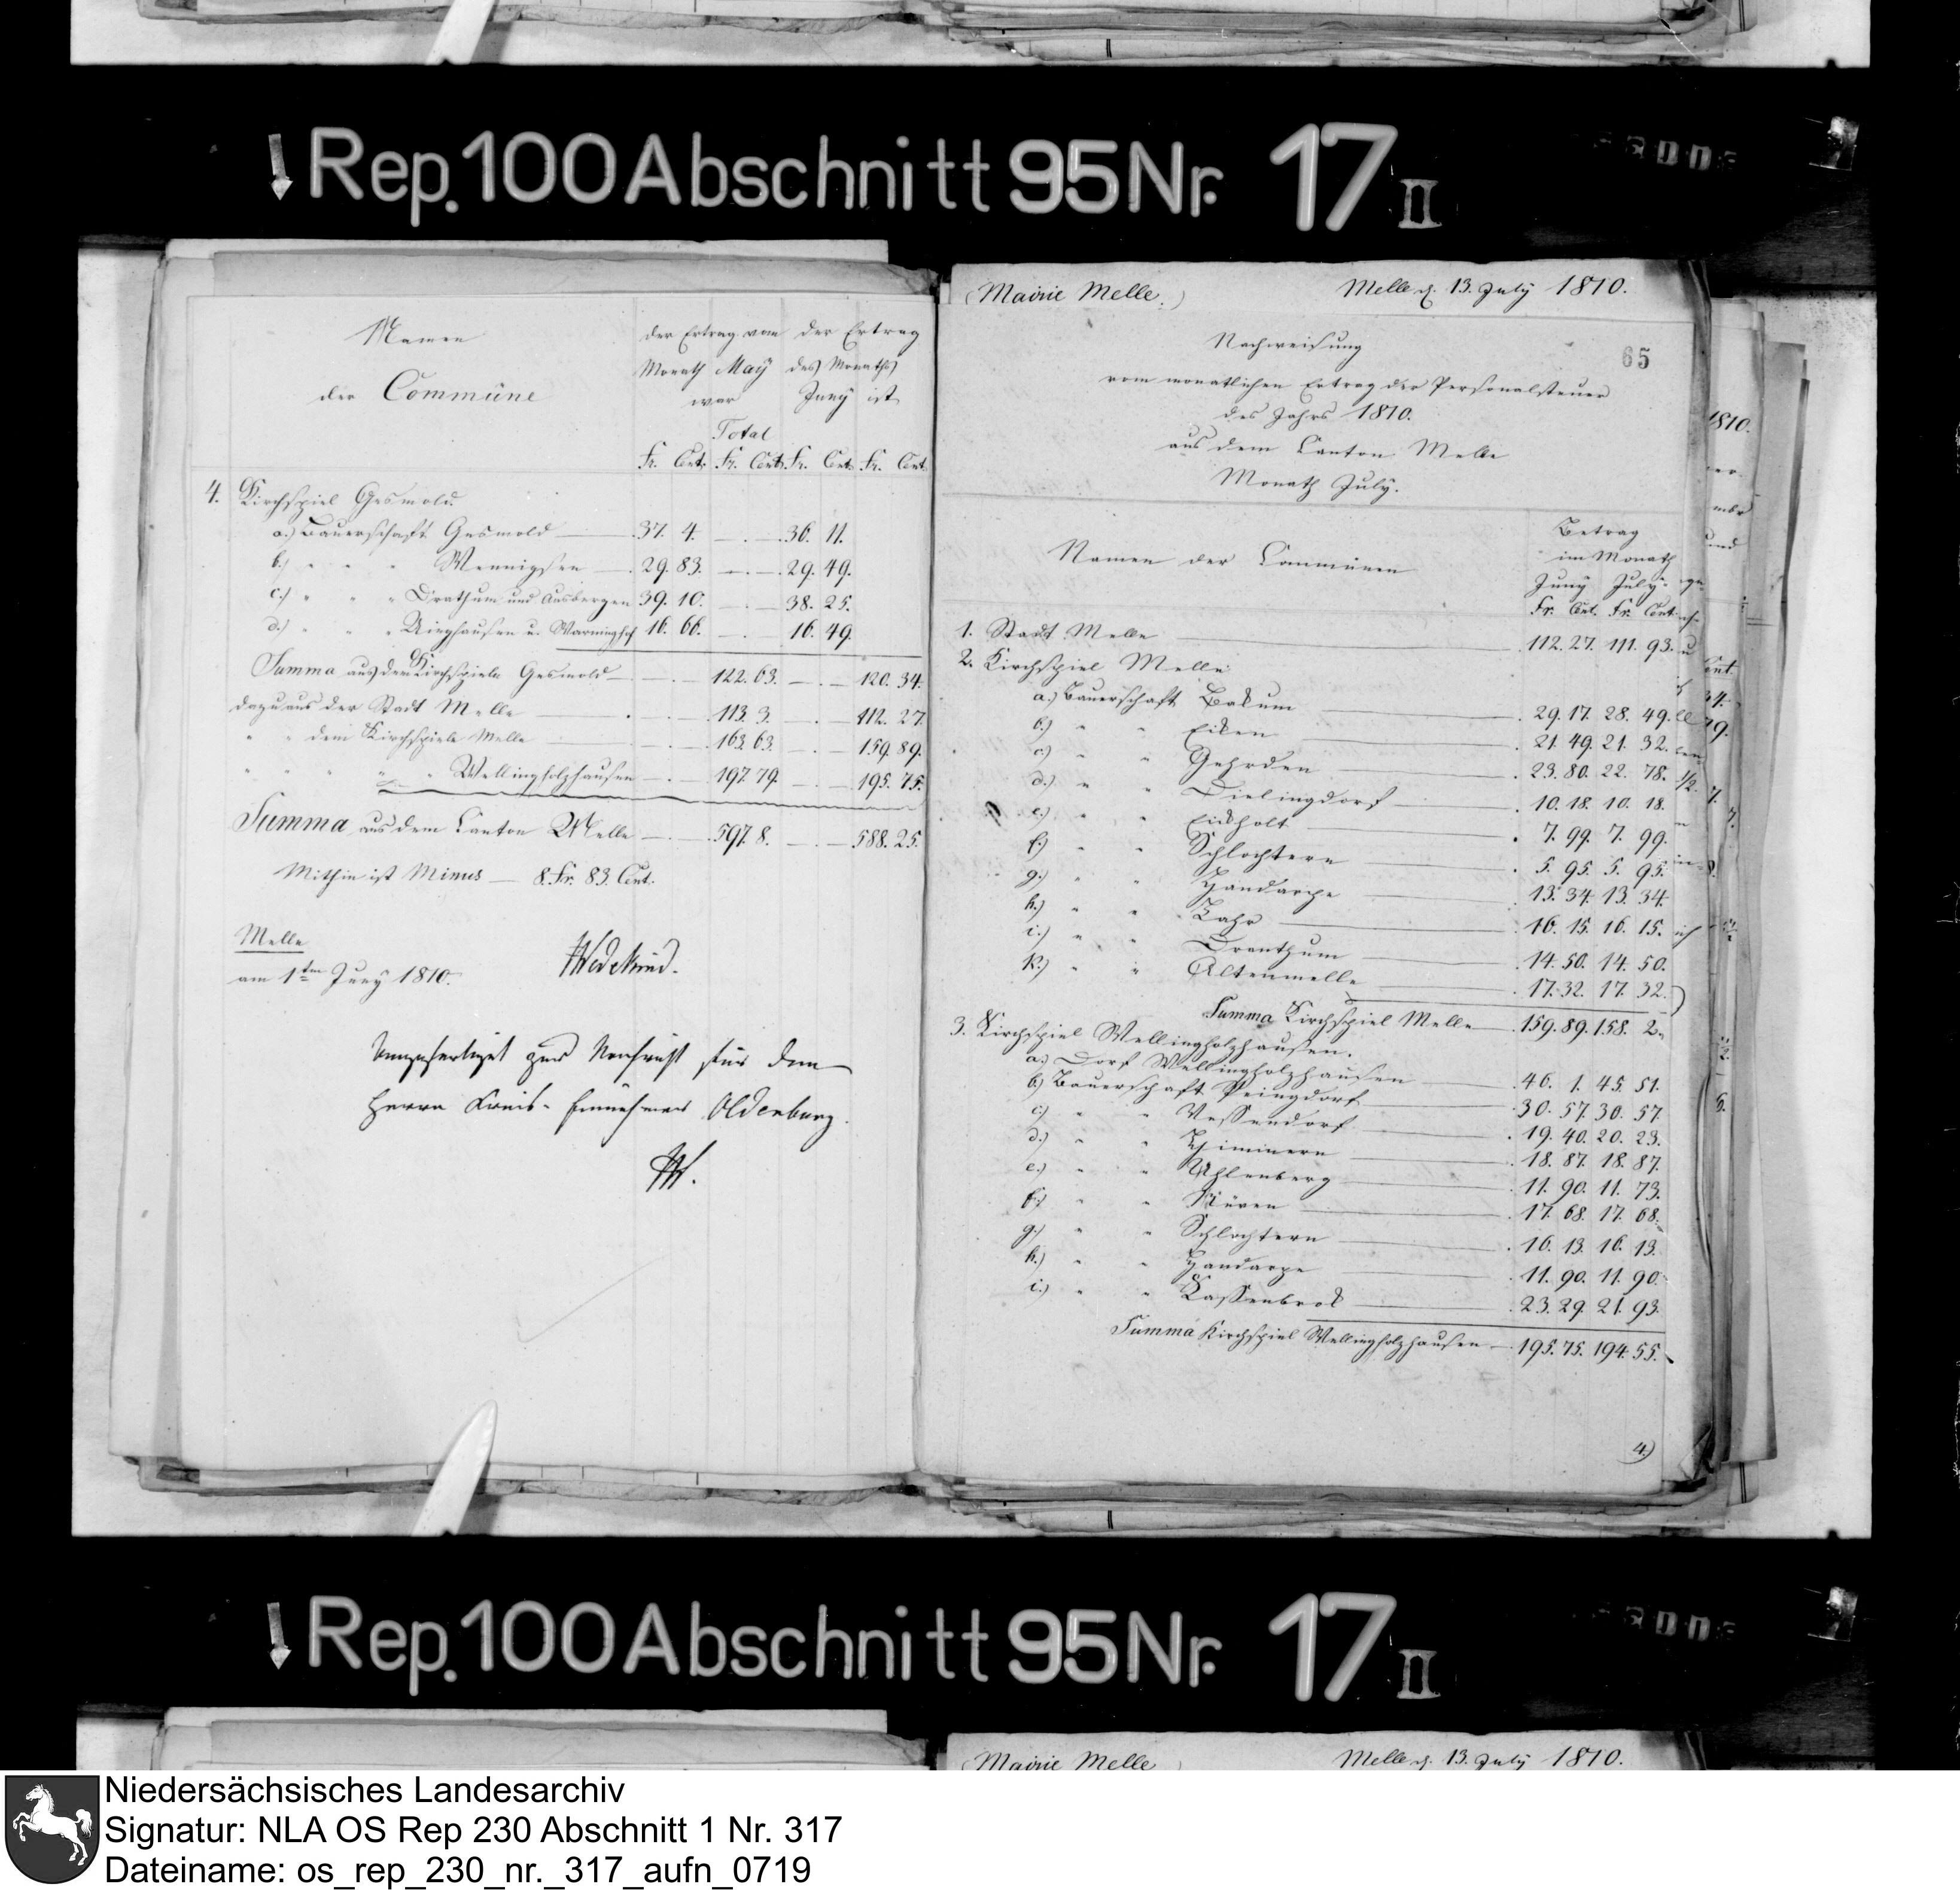 Rep. 100 Abschnitt 95 Nr. 17 II
Namen
der Commüne
der Ertrag vom
Monath May
war
der Ertrag
des Monaths
Juny ist
Total
Fr. Cent. Fr. Cent. Fr. Cent. Fr. Cent.
4. Kirchspiel Gesmold.
a.) Bauerschaft Gesmold 37. 4. 36. 11.
b.) " " " Wennigsen 29. 83. 29. 49.
c.) " " " Drathum und Ausbergen 39. 10. 38. 25.
d.) " " " u. Warminghof 16. 66. 16. 49.
Summa aus dem Kirchspiele Gesmold 122. 63. 120. 34.
dazu aus der Stadt Melle 113. 3. 112. 27.
" " dem Kirchspiele Melle 163. 63. 159. 89.
" " " " Wellingholzhausen 197. 79. 195. 75.
Summa aus dem Canton Melle 597. 8. 588. 25.
Mithin ist Minus 8. Fr. 83. Cent.
Melle
am 1ten Juny 1810.
Wedekind.
Ausgefertiget zur Nachricht für den
Herrn Kreis-Einnehmer Oldenburg.
W.
Mairie Melle.
Melle d. 13. July 1810.
65
Nachweisung
vom monatlichen Ertrag der Personalsteuer
des Jahrs 1810.
aus dem Canton Melle
Monath July.
Namen der Communen
Betrag
im Monath
Juny July
Fr. Cent. Fr. Cent.
1. Stadt Melle 112. 27. 111. 93.
2. Kirchspiel Melle
a.) Bauerschaft Bakum 29. 17. 28. 49.
b.) " " Eiken 21. 49. 21. 32.
c.) " " Gehrden 23. 80. 22. 78.
d.) " " Dielingdorf 10. 18. 10. 18.
e.) " " Eickholt 7. 99. 7. 99.
f.) " " Schlochtern 5. 95. 5. 95.
g.) " " Handarpe 13. 34. 13. 34.
h.) " " Laer 16. 15. 16. 15.
i.) " " Drantum 14. 50. 14. 50.
k.) " " Altenmelle 17. 32. 17. 32.
Summa Kirchspiel Melle 159. 89. 158. 2.
3. Kirchspiel Wellingholzhausen.
a.) Dorf Wellingholzhausen 46. 1. 45. 51.
b.) Bauerschaft Peingdorf 30. 57. 30. 57.
c.) " " Vessendorf 19. 40. 20. 23.
d.) " " Himmern 18. 87. 18. 87.
e.) " " Uhlenberg 11. 90. 11. 73.
f.) " " Nüven 17. 68. 17. 68.
g.) " " Schlochtern 16. 13. 16. 13.
h.) " " Handarpe 11. 90. 11. 90.
i.) " " Kassenbrok 23. 29. 21. 93.
Summa Kirchspiel Wellingholzhausen 195. 75. 194. 55.
4.)
Rep. 100 Abschnitt 95 Nr. 17 II
Mairie Melle
Melle d. 13. July 1810.
Niedersächsisches Landesarchiv
Signatur: NLA OS Rep 230 Abschnitt 1 Nr. 317
Dateiname: os_rep_230_nr._317_aufn_0719